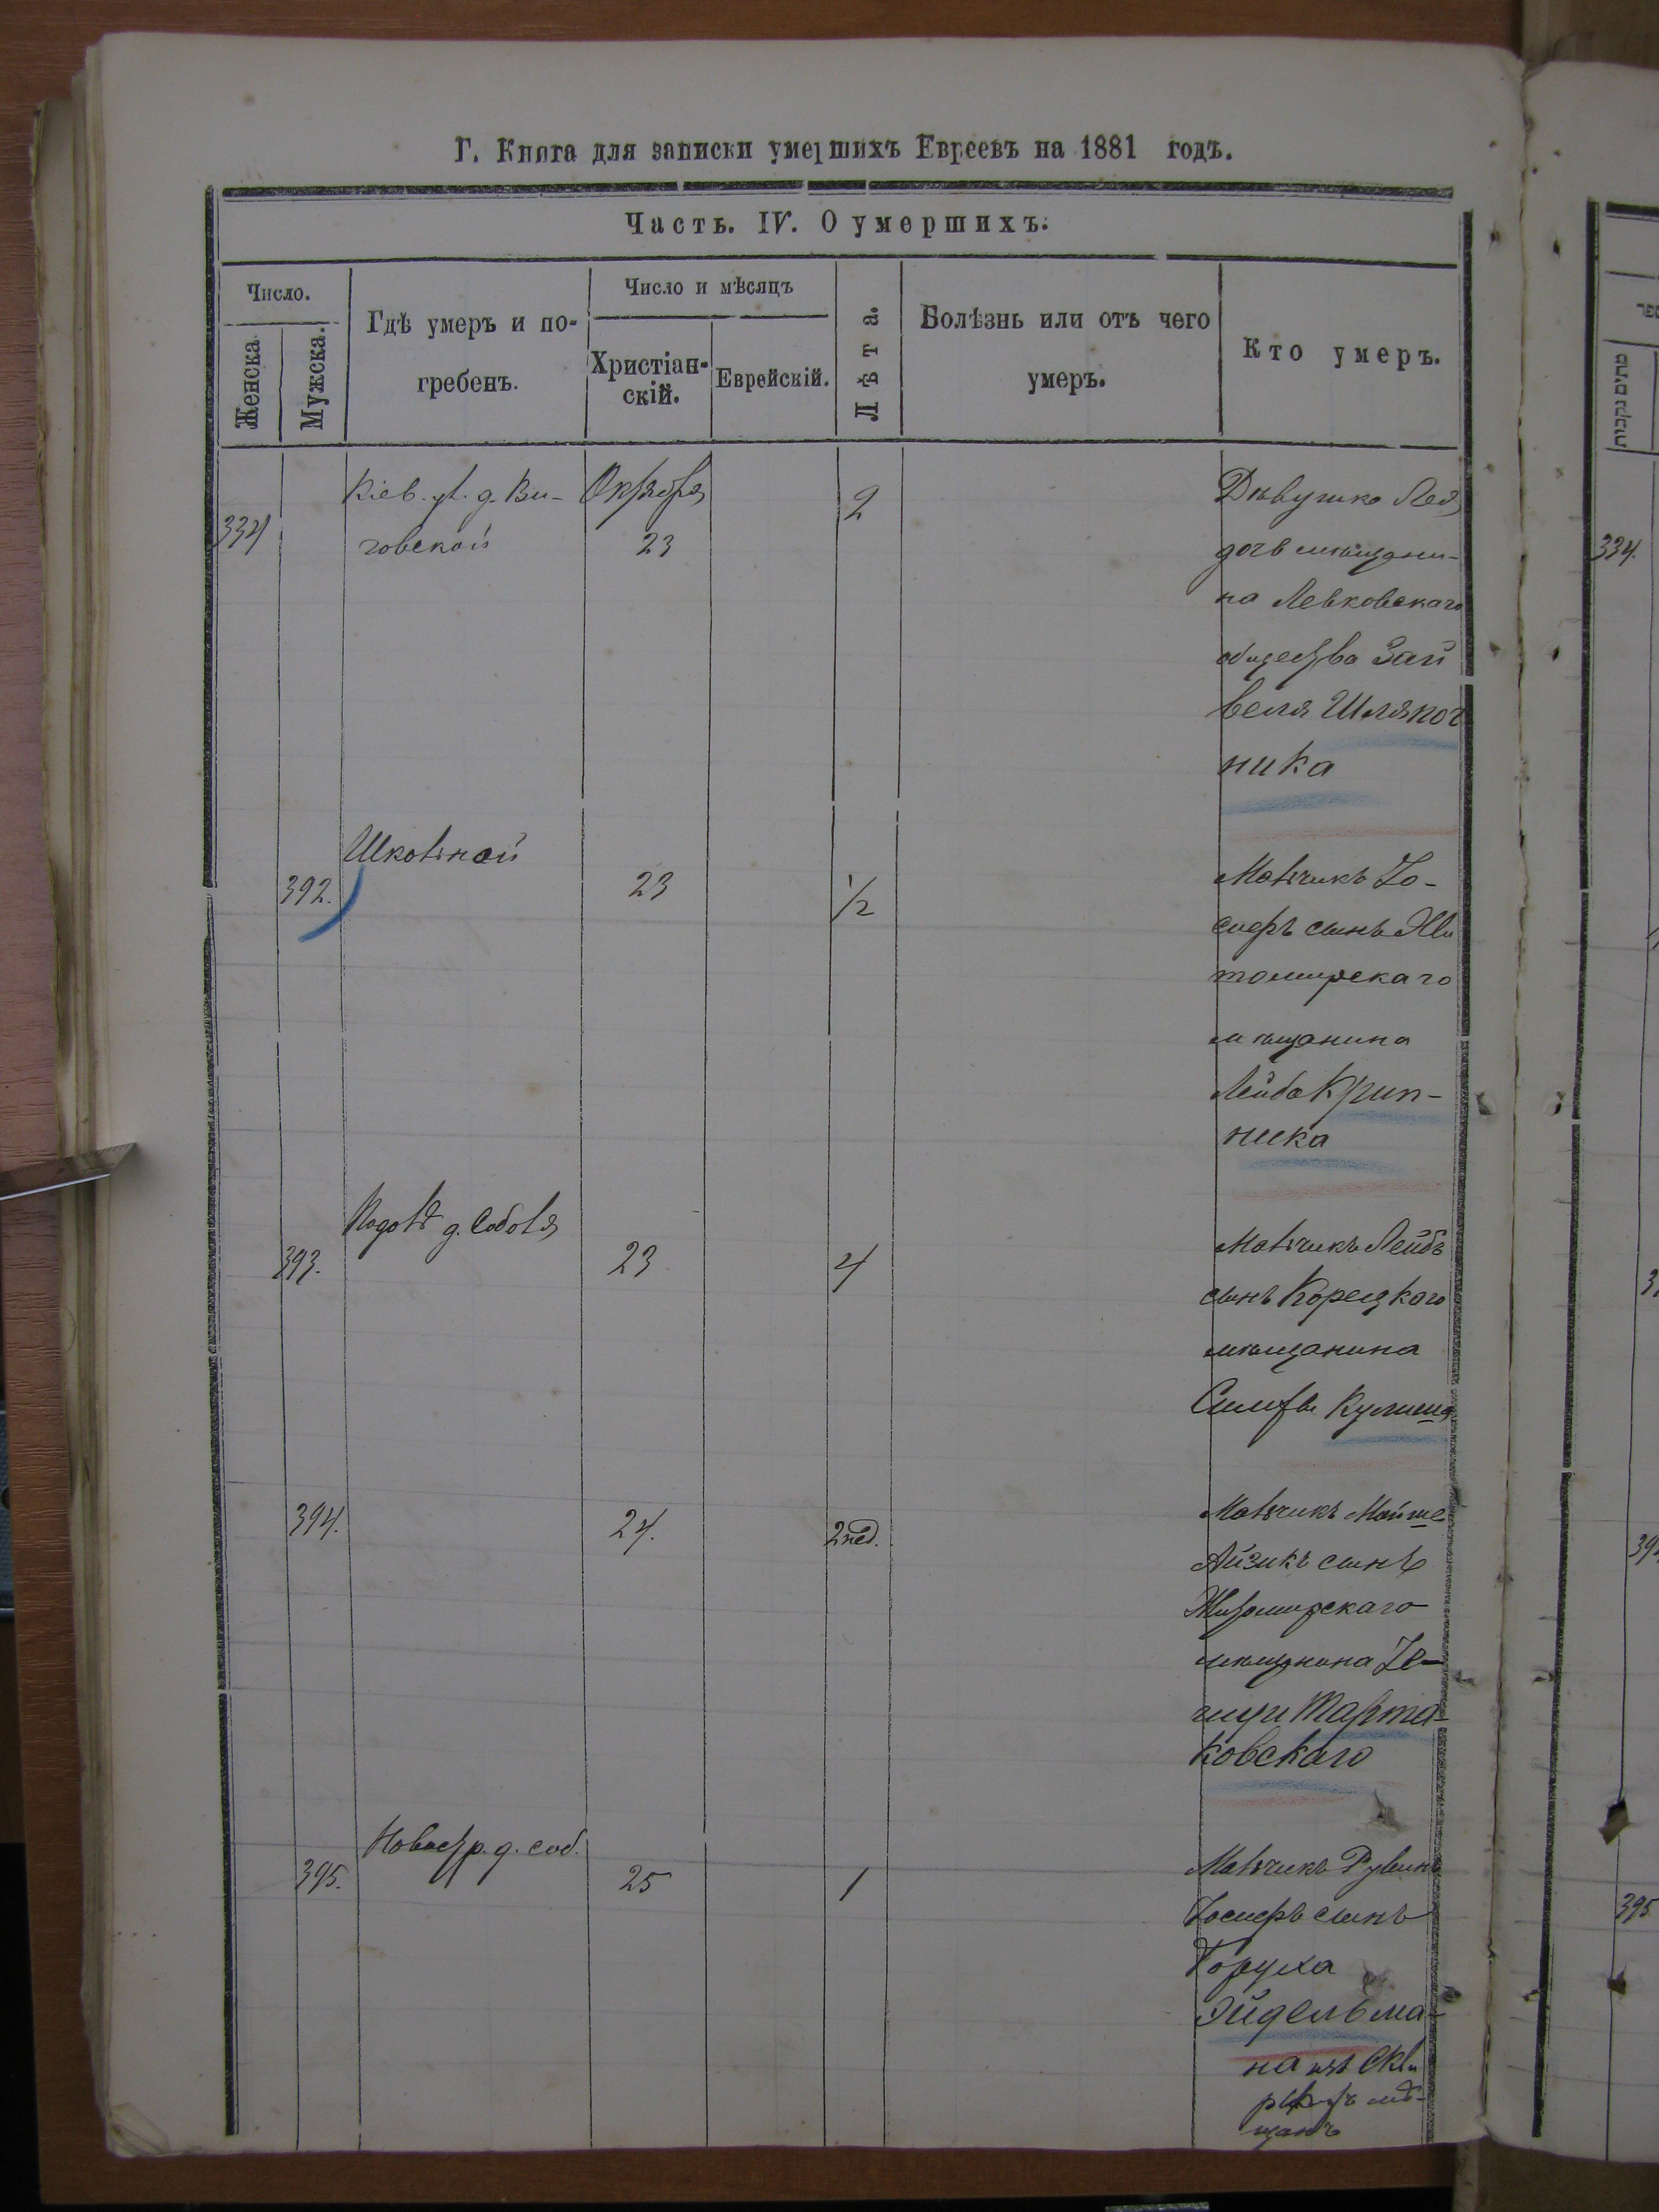 Г. Книга для записки умершихъ Евреевъ на 1881 годъ.
Часть. IV. О умершихъ.
Число.
Женска
Мужска.
Гдѣ умеръ и по-
гребенъ.
Число и мѣсяцъ
Христіан-
скій.
Еврейскій.
Лѣта.
Болѣзнь или отъ чего
умеръ.
Кто умеръ.
מתים נקבות
334
Кіев. ул. д. Ви-
говской
Октября
23
2
Дѣвушка Лея
дочь мѣщани-
на Левковскаго
общества Зай
веля Шляпоч
ника
334.
392.
Школьной
23
1/2
Мальчикъ Іо-
сифъ сынъ Жи
томирскаго
мѣщанина
Лейба Крип-
ника
393.
Подолъ д. Соболя
23
4
Мальчикъ Лейбъ
сынъ Корецкаго
мѣщанина
Кулиша
394.
24.
2 нед.
Мальчикъ Мойше
Айзикъ сынъ
Житомирскаго
мѣщанина Іе-
Тарта-
ковскаго
395.
Новостр. д. соб.
25
1
Мальчикъ Рувинъ
Іосифъ сынъ
Боруха
Эйдельма-
на изъ Скви
мѣ-
щанъ
395